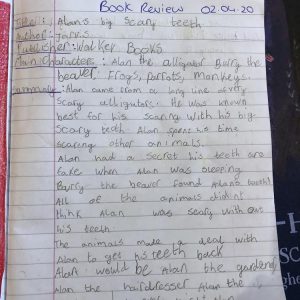 Book Review 02.04.20
Title: Alan's big scary teeth
Author: Jarvis
Publisher: Walker Books
Main Characters: Alan the alligator Barry the
beaver. Frogs, parrots, monkeys.
Summary: Alan came from a long line of very
scary alligators. He was known
best for his scaring with his big
scary teeth. Alan spent his time
scaring other animals.
Alan had a secret his teeth are
fake when Alan was sleeping
Barry the beaver found Alans teeth!
All of the animals didnt
think Alan was scary with out
his teeth.
The animals made a deal with
Alan to get his teeth back
Alan would be Alan the gardener,
Alan the hairdresser Alan the